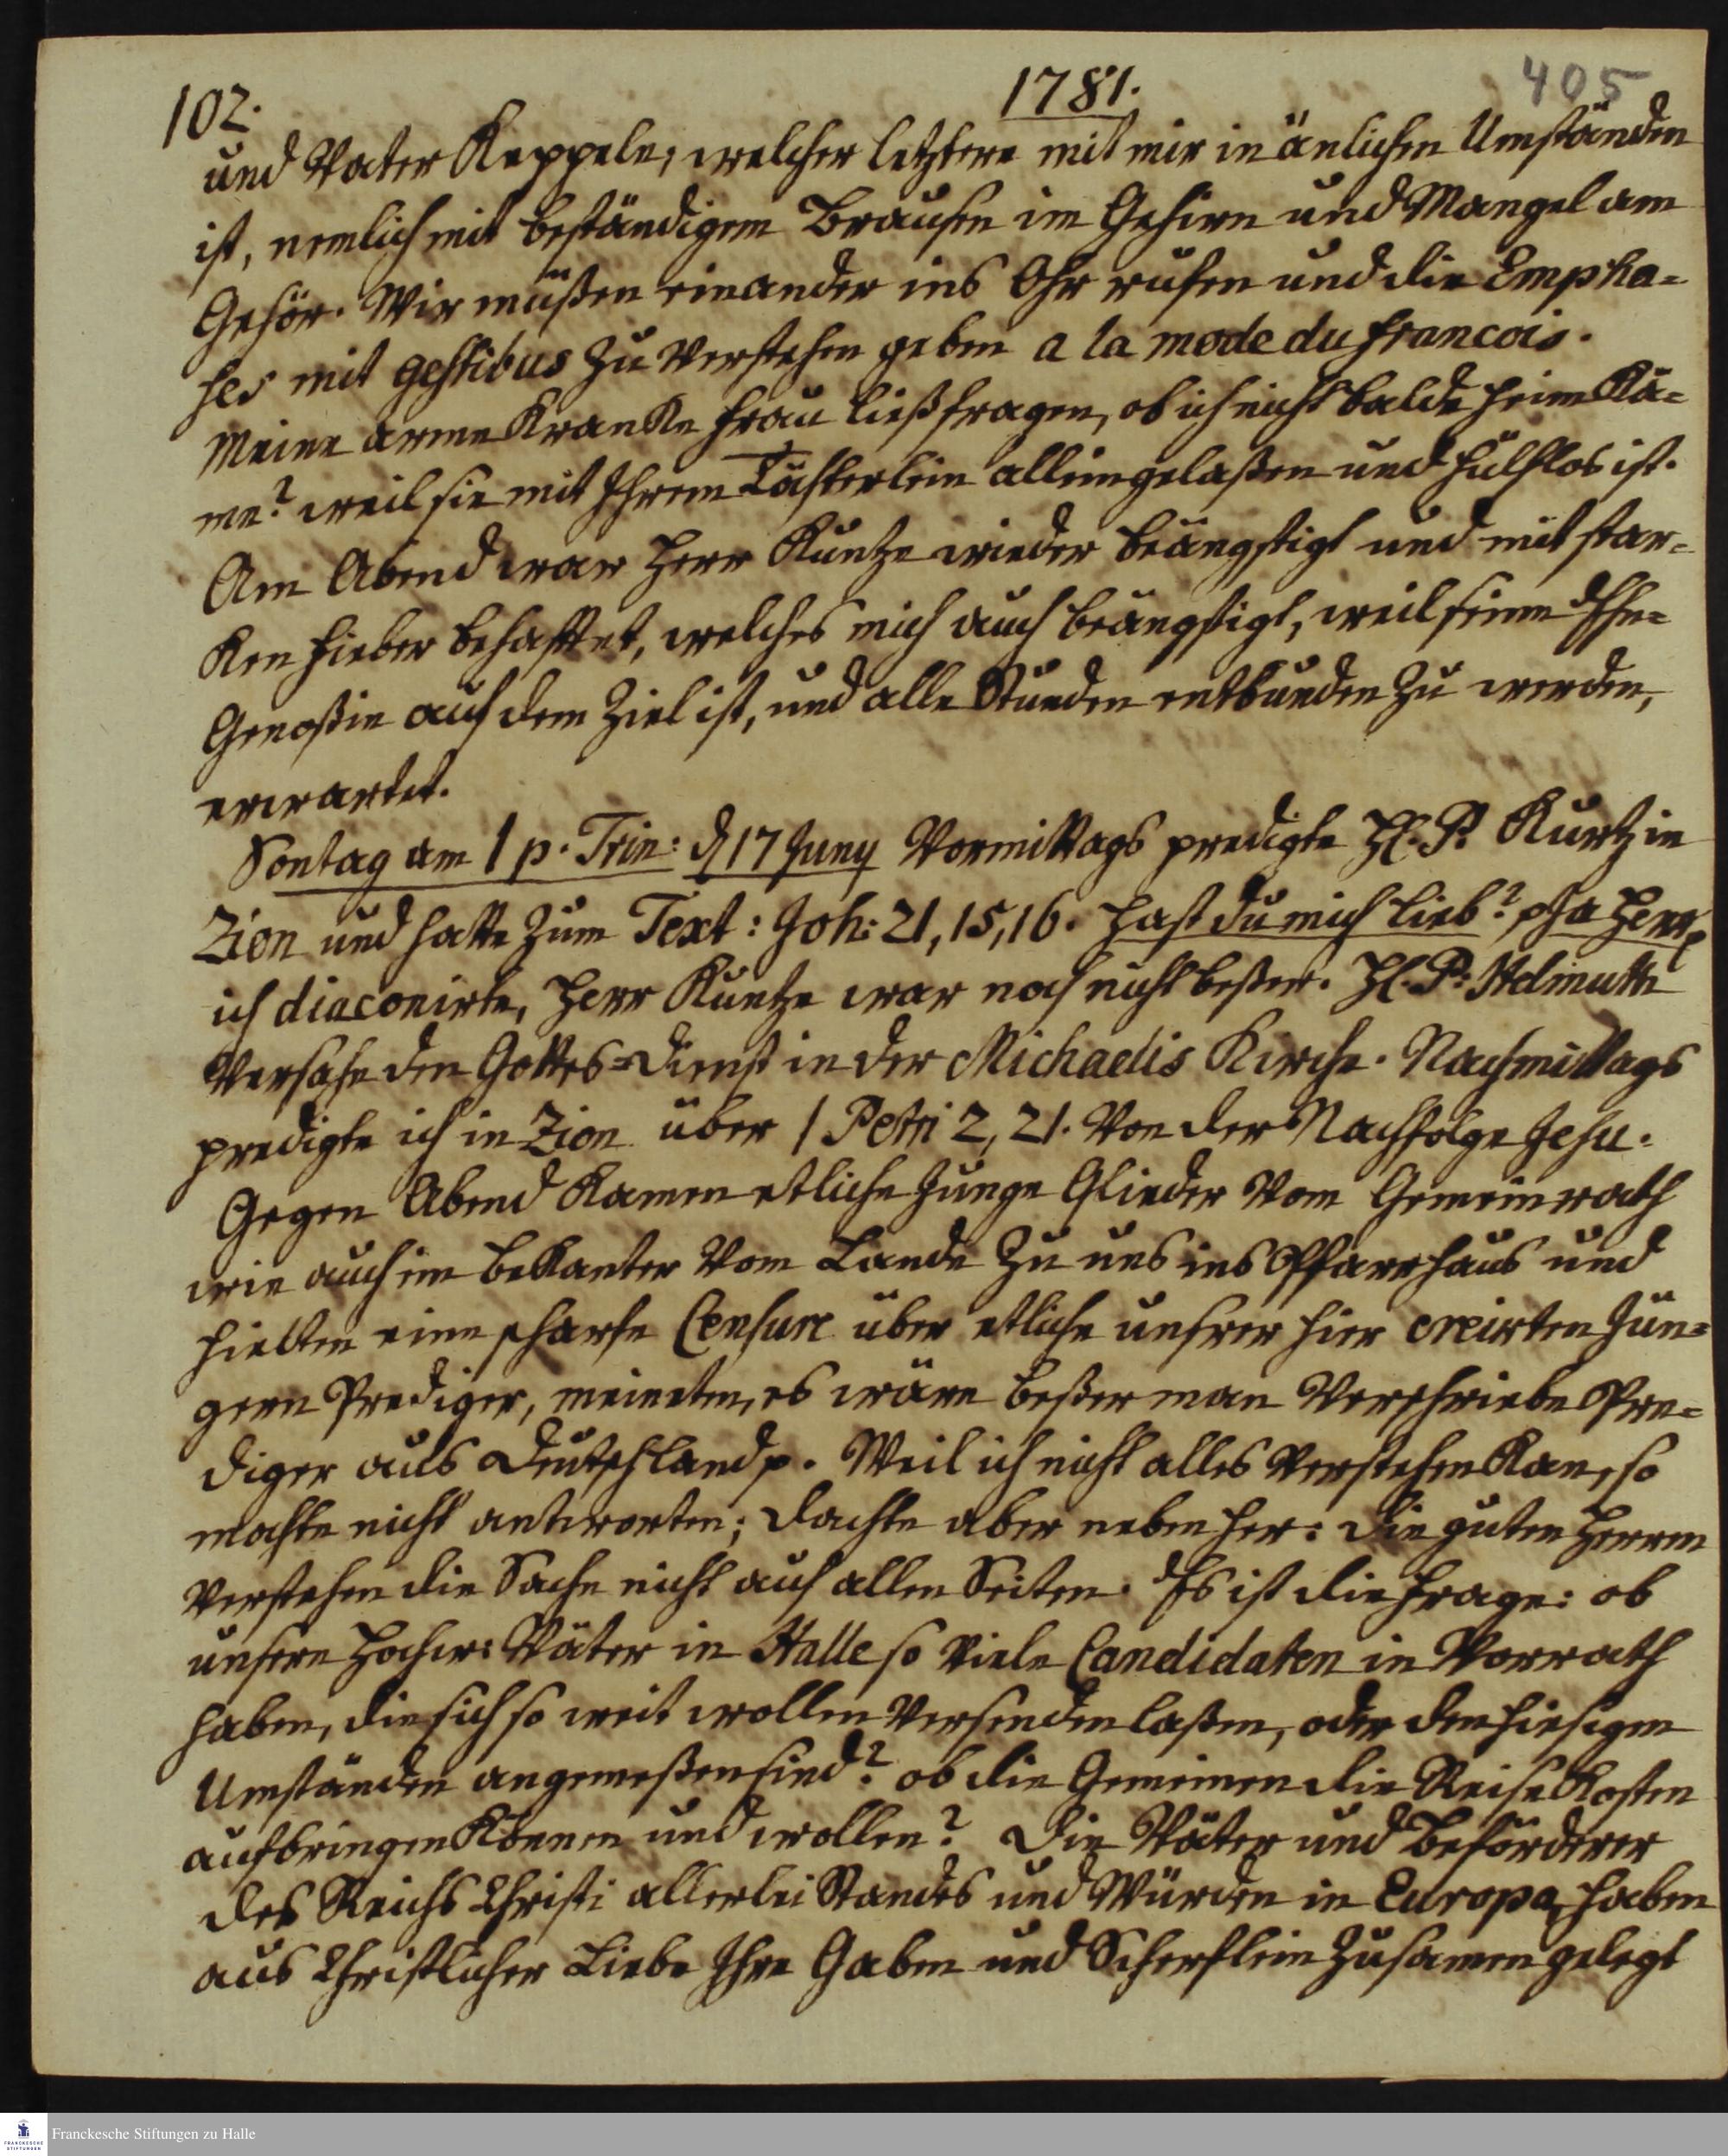 102.
1781.
405
und Vater Keppele; welcher letztere mit mir in änlichen Umständen
ist, nemlich mit beständigem Brausen im Gehirn und Mangel am
Gehör. Wir müßen einander ins Ohr rufen und die Empha-
ses mit gestibus zu verstehen geben a la mode du francois.
Meine arme Kranke Frau ließ fragen, ob ich nicht balde heim Kä-
me? weil sie mit Ihrem Töchterlein allein gelaßen und hülflos ist.
Am Abend war Herr Kuntze wieder beängstigt und mit star-
Ken Fieber behafftet, welches mich auch beängstigt, weil seine Ehe-
Genoßin auf dem Ziel ist, und alle Stunden entbunden zu werden,
erwartet.
Sontag am 1 p. Trin: d 17 Juny Vormittags predigte H. P. Kurtz in
Zion und hatte zum Text: Joh: 21, 15, 16. Hast du mich lieb? p Ja Herr p
ich diaconirte, Herr Kuntze war noch nicht beßer. H. P: Helmuth
Versahe den Gottes-Dienst in der Michaelis Kirche. Nachmittags
predigte ich in Zion über 1 Petri 2, 21. Von der Nachfolge Jesu.
Gegen Abend Kamen etliche junge Glieder vom Gemeinrath
wie auch ein beKanter vom Lande zu uns ins Pfarrhaus und
hielten eine scharfe Censure über etliche unsrer hier creirten Jün-
gern Prediger, meineten, es wäre beßer man verschriebe Pre-
diger aus Deutschland p. Weil ich nicht alles verstehen Kan, so
mochte nicht antworten; dachte aber neben her: die guten Herren
verstehen die Sache nicht auf allen Seiten. Es ist die Frage: ob
unsere Hochw: Väter in Halle so viele Candidaten in Vorrath
haben, die sich so weit wollen versenden laßen, oder den hiesigen
Umständen angemeßen sind? ob die Gemeinen die Reise Kosten
aufbringen Können und wollen? Die Väter und Beförderer
des Reichs Christi allerlei Standes und Würden in Europa, haben
aus Christlicher Liebe Ihre Gaben und Scherflein zusamen gelegt
FRANCKESCHE STIFTUNGEN
Franckesche Stiftungen zu Halle